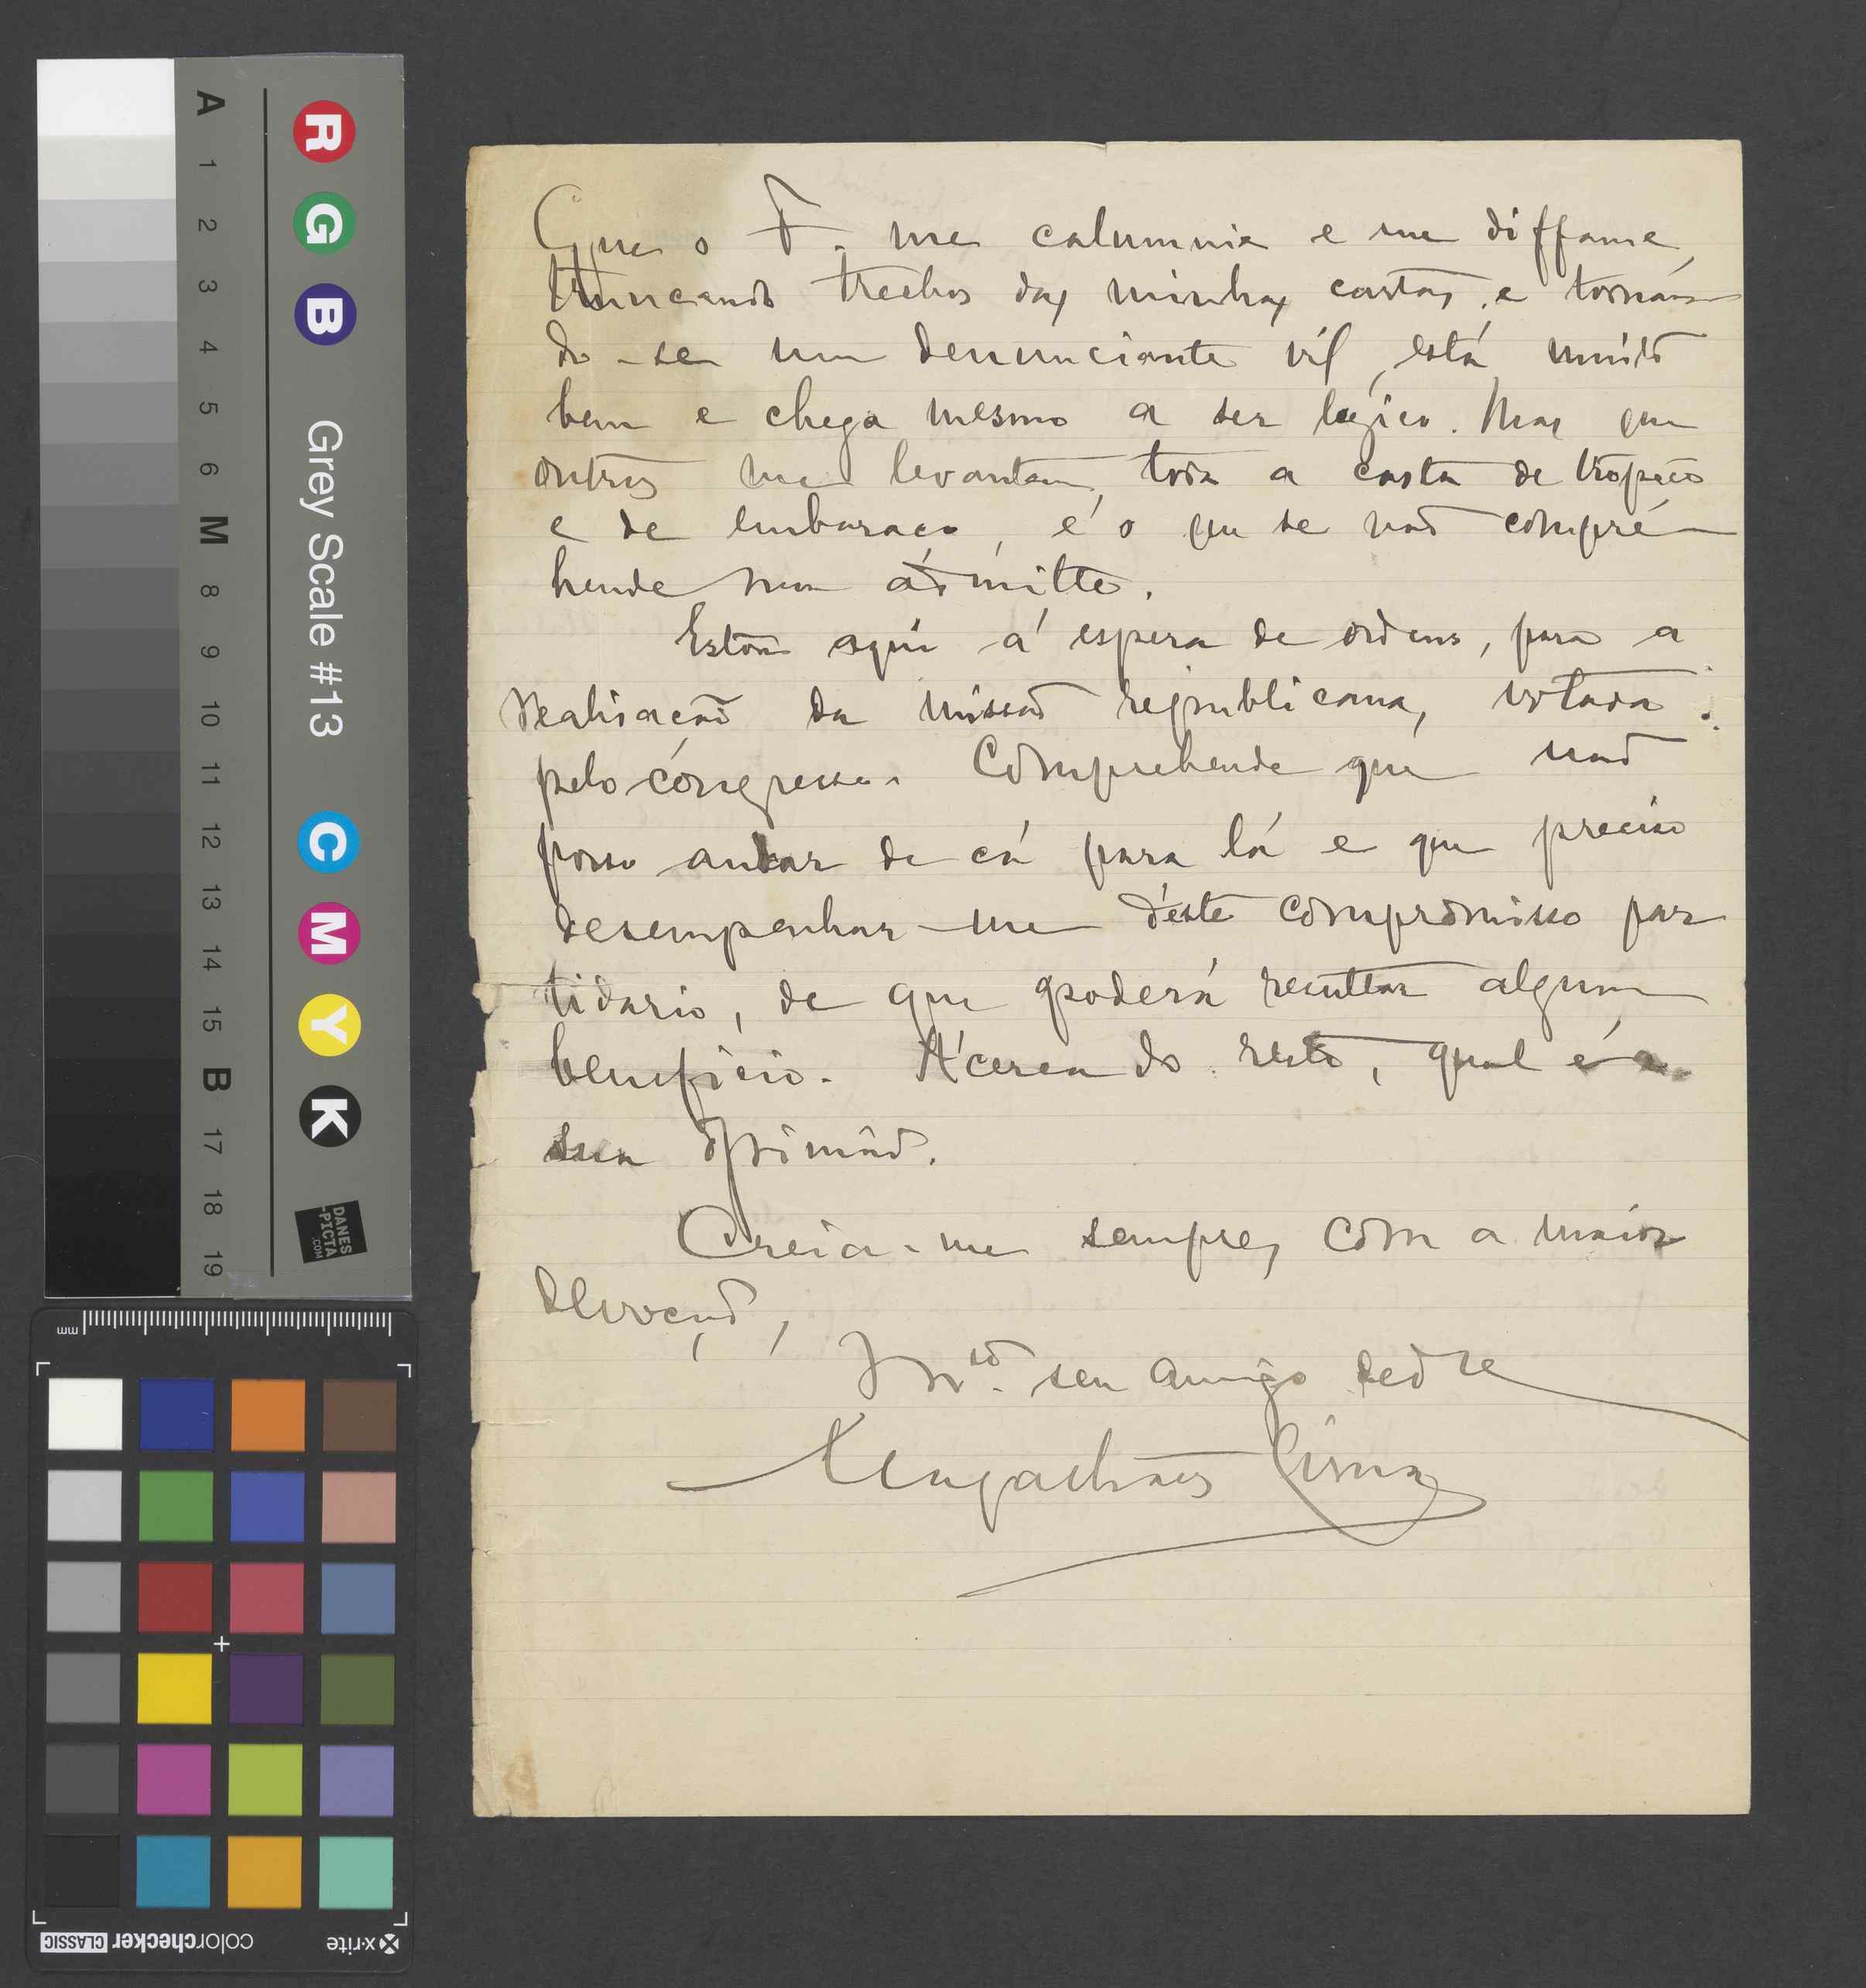 Que o F. me calumnie e me diffame,
truncando trechos das minhas cartas, e tornan-
do-se um denunciante vil, está muito
bem e chega mesmo a ser logico. Mas que
outros me levantem, toda a casta de tropeço
e de embaraço, é o que se não compre-
hende nem admitte.
Estou aqui á espera de ordens, para a
realisação da missão republicana, votada
pelo congresso. Comprehende que não
posso andar de cá para lá e que preciso
desempenhar-me d'este compromisso par
tidario, de que poderá resultar algum
beneficio. Ácerca do resto, qual é a
sua opinião.
Creia-me sempre, com a maior
devoção,
seu amigo ded.re
Magalhães Lima
A
1
2
3
4
5
6
M
8
9
10
11
12
13
14
15
B
17
18
19
R
G
B
Grey Scale #13
C
M
Y
K
DANES
-PICTA
.COM
mm
x-rite
colorchecker CLASSIC